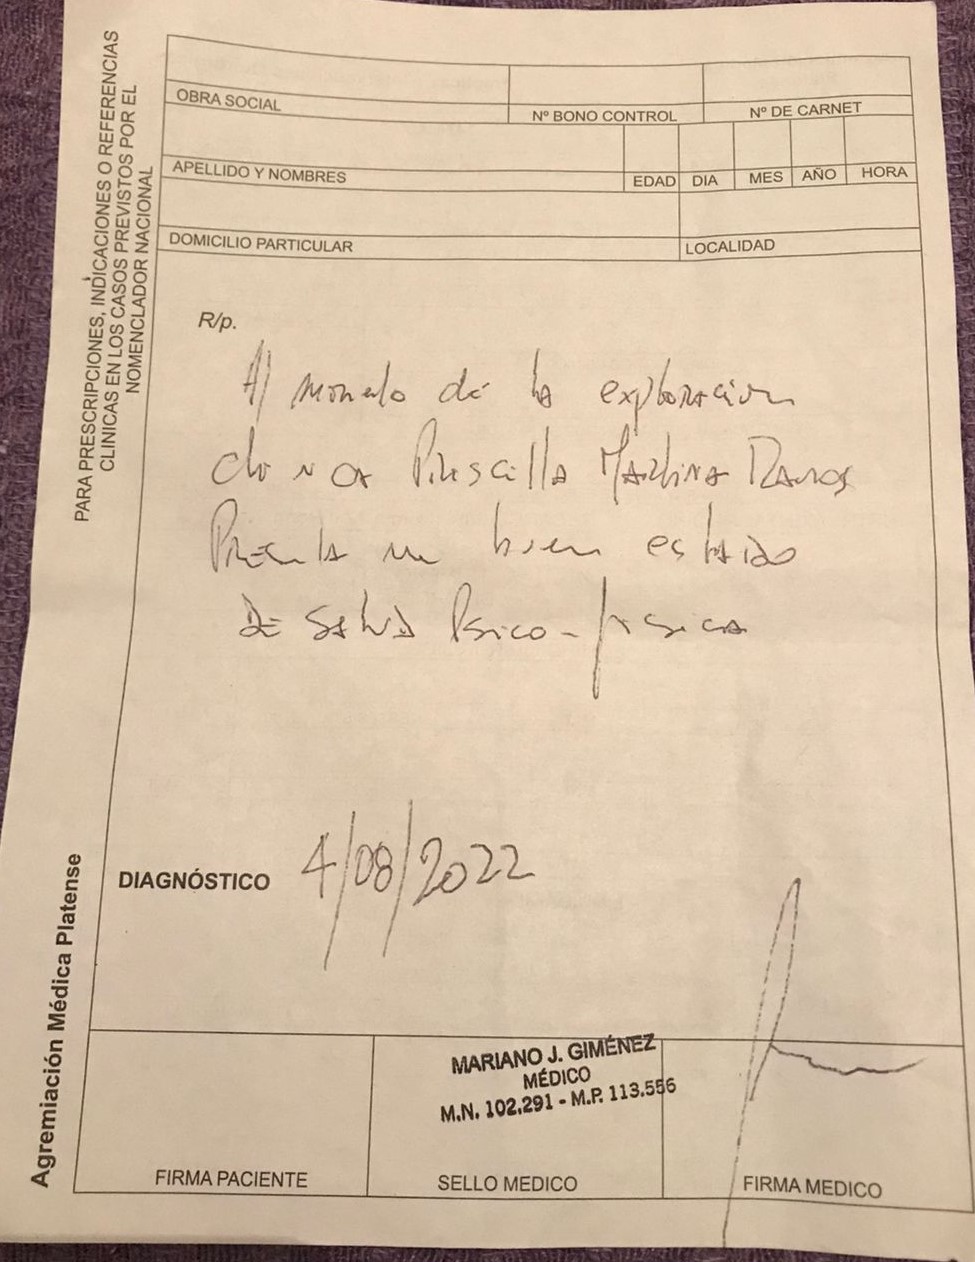 PARA PRESCRIPCIONES, INDICACIONES O REFERENCIAS
CLINICAS EN LOS CASOS PREVISTOS POR EL
NOMENCLADOR NACIONAL
OBRA SOCIAL
Nº BONO CONTROL
Nº DE CARNET
APELLIDO Y NOMBRES
EDAD
DIA
MES
AÑO
HORA
DOMICILIO PARTICULAR
LOCALIDAD
R/p.
Al de la exploracion
Priscilla Martina Ramos
Presenta un buen estado
DE SALUD Psico-fisica
DIAGNÓSTICO 4/08/2022
Agremiación Médica Platense
MARIANO J. GIMÉNEZ
MÉDICO
M.N. 102.291 - M.P. 113.556
FIRMA PACIENTE
SELLO MEDICO
FIRMA MEDICO